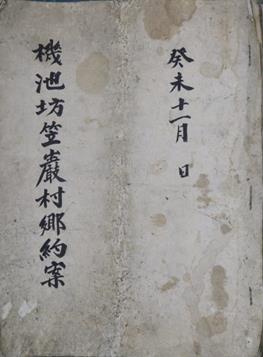 癸未十一月 日
機池坊笠巖村鄉約案